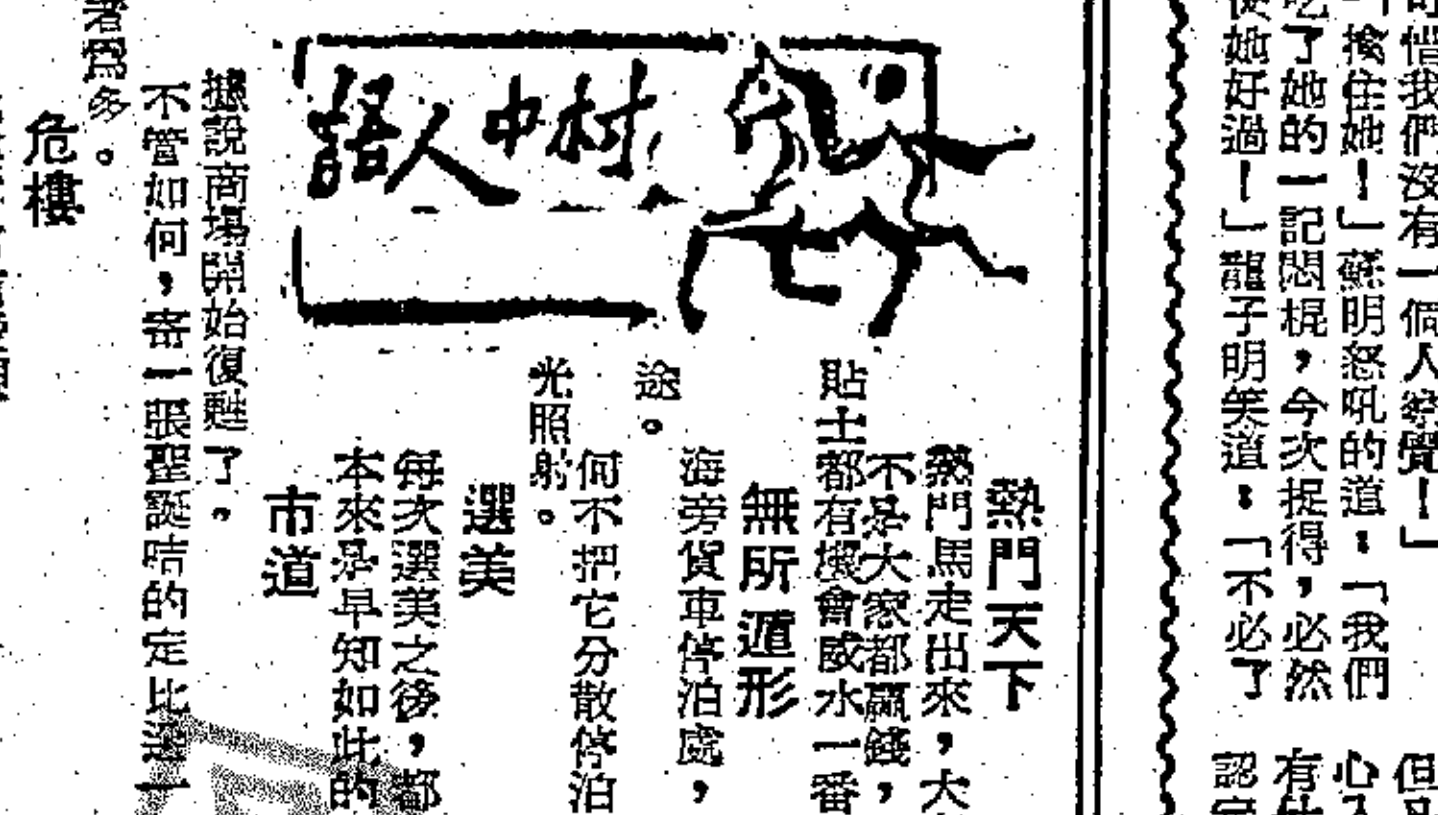 可惜我們沒有一個人察覺！」
擒住她！」蘇明怒吼的道：「我們
吃了她的一記悶棍，今次捉得，必然
使她好過！」龍子明笑道：「不必了
但
心
有
認
村中人語
熱門天下
熱門馬走出來，大
不是大家都贏錢，
貼士都有機會威水一番
無所遁形
海旁貨車停泊處，
途。
何不把它分散停泊
光照射。
選美
每次選美之後，都
本來是早知如此的
市道
據說商場開始復甦了。
不管如何，寄一張聖誕咭的定比送一
者爲多。
危樓